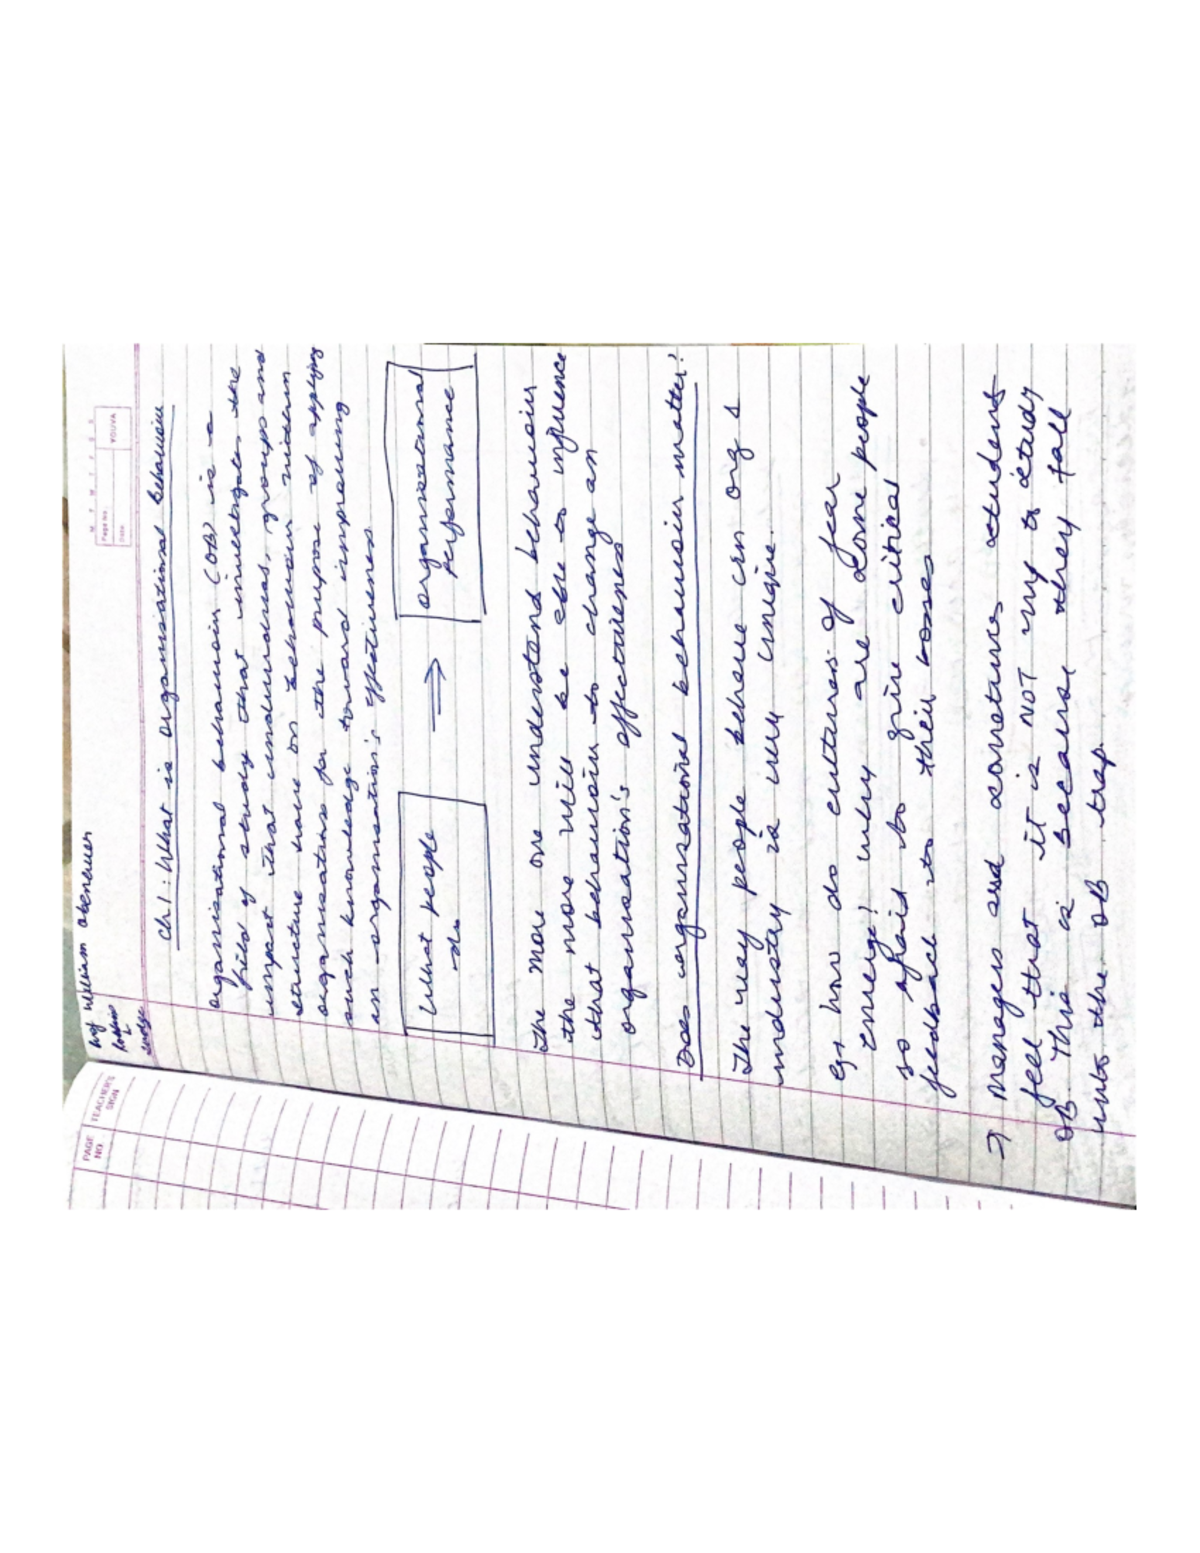 M T W T F S S
Page No.:
Date:
YOUVA
Prof William
Ch1: What is organisational behaviour
organisational behaviour (OB) is a
field of study that investigates the
impact that individuals, groups and
structure have on behaviour within
organisations for the purpose of applying
such knowledge toward improving
an organisation's effectiveness.
What people do ⇒ organisational Performance
The more one understand behaviour
the more will be able to influence
that behaviour to change an
organisation's effectiveness
Does organisational behaviour matter?
The way people behave in org &
industry is very unique.
eg how do cultures of fear
emerge? why are some people
so afraid to give critical
feedback to their bosses
→ managers and sometimes students
feel that it is NOT imp to study
OB. This is because they fall
into the OB trap.
PAGE NO.
TEACHER'S SIGN